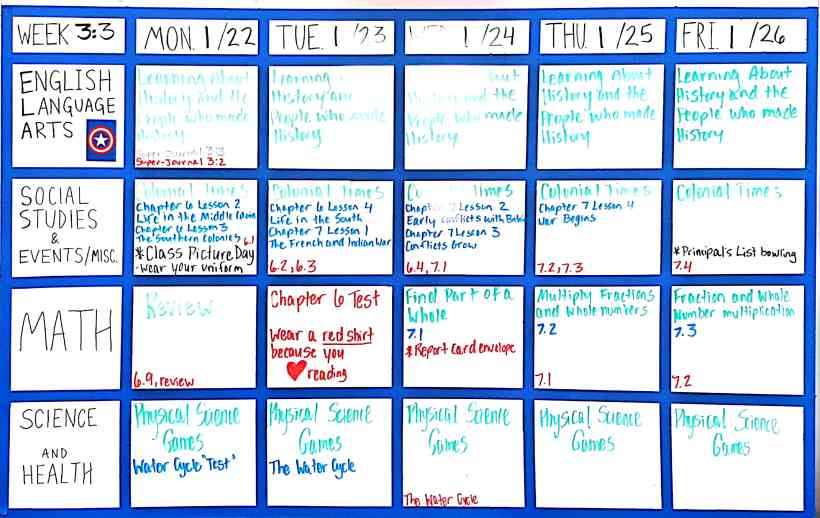 WEEK 3:3
MON. 1/22
TUE. 1/23
1/24
THU. 1/25
FRI. 1/26
ENGLISH
LANGUAGE
ARTS
Learning About
History and the
People who made
History
Super-Journal 3:3
Super-Journal 3:2
Learning
History and
People who made
History
History and the
People who made
History
Learning About
History and the
People who made
History
Learning About
History and the
People who made
History
SOCIAL
STUDIES
&
EVENTS/MISC.
Colonial Times
Chapter 6 Lesson 2
Life in the Middle
Chapter 6 Lesson 3
The Southern Colonies 6.1
*Class Picture Day
-wear your uniform
Colonial Times
Chapter 6 Lesson 4
Life in the South
Chapter 7 Lesson 1
The French and Indian War
6.2, 6.3
Times
Chapter 7 Lesson 2
Early Conflicts with
Chapter 7 Lesson 3
Conflicts Grow
6.4, 7.1
Colonial Times
Chapter 7 Lesson 4
War Begins
7.2, 7.3
Colonial Times
*Principal's List bowling
7.4
MATH
Review
6.9, review
Chapter 6 Test
Wear a red shirt
because you
❤ reading
Find Part of a
Whole
7.1
*Report Card envelope
Multiply Fractions
and Whole numbers
7.2
7.1
Fraction and Whole
Number multiplication
7.3
7.2
SCIENCE
AND
HEALTH
Physical Science
Games
Water Cycle "Test"
Physical Science
Games
The Water Cycle
Physical Science
Games
The Water Cycle
Physical Science
Games
Physical Science
Games